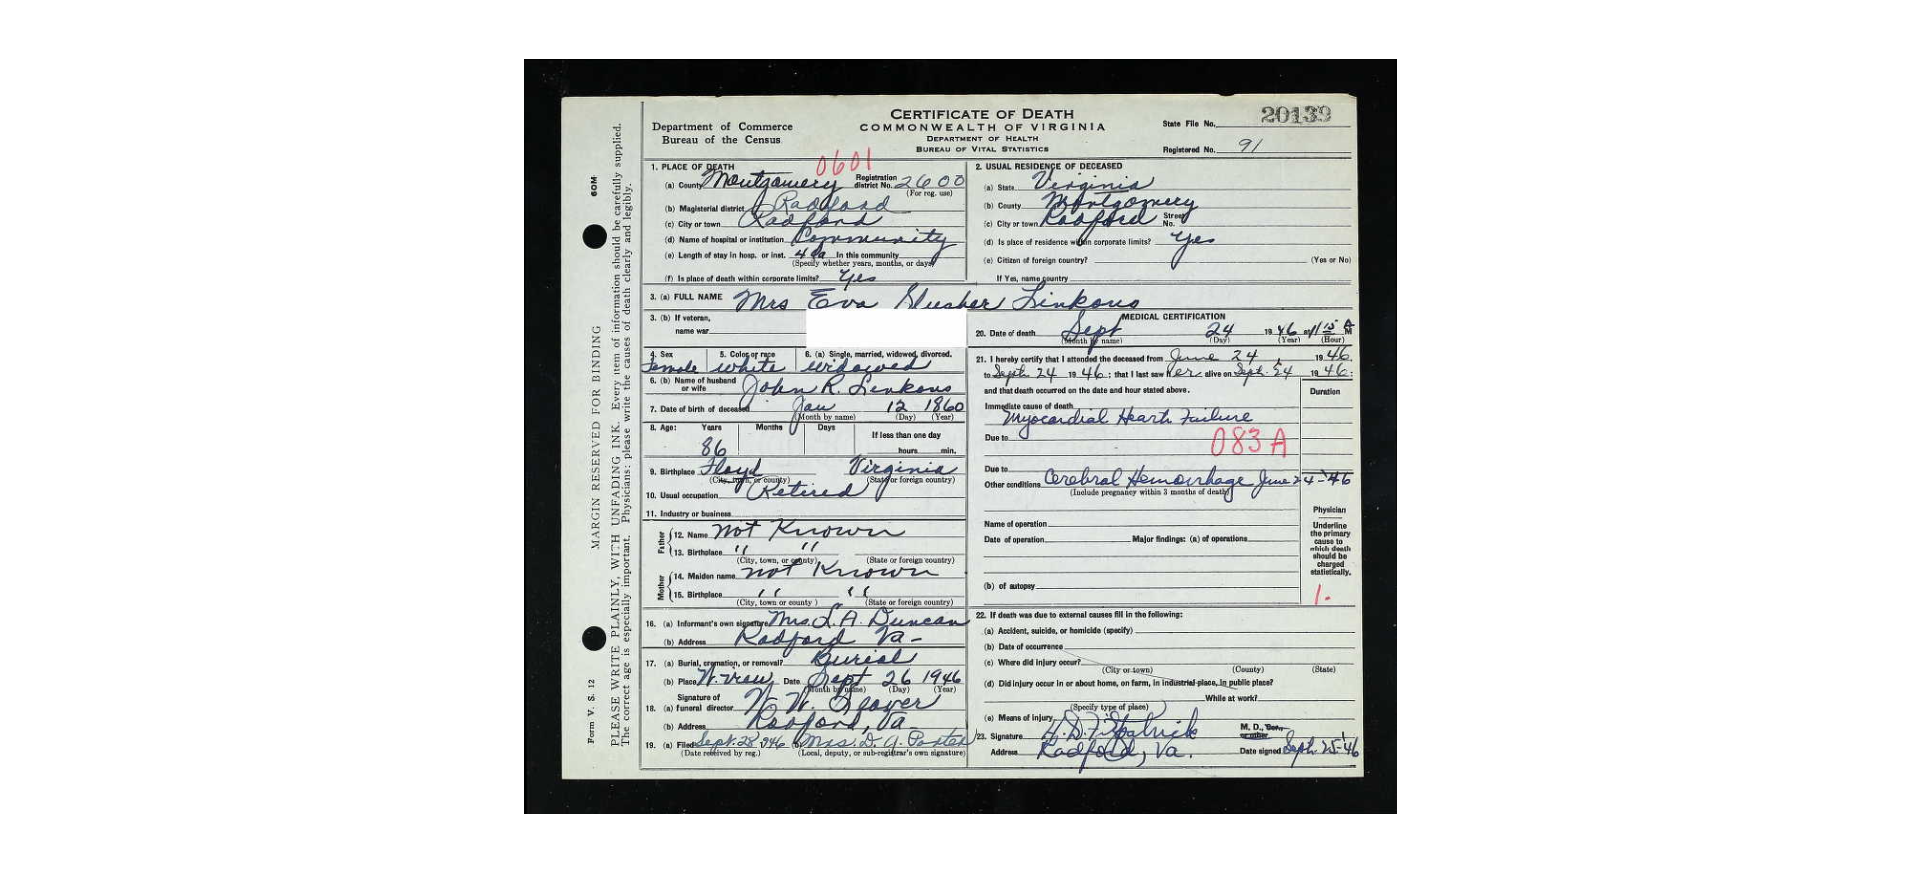 CERTIFICATE OF DEATH
COMMONWEALTH OF VIRGINIA
DEPARTMENT OF HEALTH
BUREAU OF VITAL STATISTICS
Department of Commerce
Bureau of the Census
State File No. 20139
Registered No. 91
60M
MARGIN RESERVED FOR BINDING
Form V. S. 12
PLEASE WRITE PLAINLY, WITH UNFADING INK. Every item of information should be carefully supplied.
The correct age is especially important. Physicians: please write the causes of death clearly and legibly.
1. PLACE OF DEATH 0601
(a) County Montgomery Registration district No. 2600
(For reg. use)
(b) Magisterial district Radford
(c) City or town Radford
(d) Name of hospital or institution Community
(e) Length of stay in hosp. or inst. 4 da In this community
(Specify whether years, months, or days)
(f) Is place of death within corporate limits? Yes
2. USUAL RESIDENCE OF DECEASED
(a) State Virginia
(b) County Montgomery
(c) City or town Radford Street No.
(d) Is place of residence within corporate limits? Yes
(e) Citizen of foreign country? (Yes or No)
If Yes, name country
3. (a) FULL NAME Mrs Eva Slusher Linkous
3. (b) If veteran,
name war
4. Sex 5. Color or race 6. (a) Single, married, widowed, divorced.
Female white widowed
6. (b) Name of husband or wife John R. Linkous
7. Date of birth of deceased Jan 12 1860
(Month by name) (Day) (Year)
8. Age: Years Months Days If less than one day
86 hours min.
9. Birthplace Floyd Virginia
(City, town, or county) (State or foreign country)
10. Usual occupation Retired
11. Industry or business
Father
12. Name not Known
13. Birthplace " "
(City, town, or county) (State or foreign country)
Mother
14. Maiden name not Known
15. Birthplace " "
(City, town or county) (State or foreign country)
16. (a) Informant's own signature Mrs. L. A. Duncan
(b) Address Radford Va-
17. (a) Burial, cremation, or removal? Burial
(b) Place W. view Date Sept 26 1946
(Month by name) (Day) (Year)
Signature of
18. (a) funeral director W. W.
(b) Address Radford, Va-
19. (a) Filed Sept. 28 1946 (b) Mrs. D. G. Porter
(Date received by reg.) (Local, deputy, or sub-registrar's own signature)
MEDICAL CERTIFICATION
20. Date of death Sept 24 1946 at 11 15 A M
(Month by name) (Day) (Year) (Hour)
21. I hereby certify that I attended the deceased from June 24, 1946
to Sept. 24 1946; that I last saw her alive on Sept. 24 1946;
and that death occurred on the date and hour stated above. Duration
Immediate cause of death
Myocardial Heart Failure
Due to 083 A
Due to
Other conditions Cerebral Hemorrhage June 24-'46
(Include pregnancy within 3 months of death)
Name of operation
Date of operation Major findings: (a) of operations
(b) of autopsy
Physician
Underline the primary cause to which death should be charged statistically.
1.
22. If death was due to external causes fill in the following:
(a) Accident, suicide, or homicide (specify)
(b) Date of occurrence
(c) Where did injury occur?
(City or town) (County) (State)
(d) Did injury occur in or about home, on farm, in industrial place, in public place?
While at work?
(Specify type of place)
(e) Means of injury
23. Signature Fitzpatrick M. D.,
or other
Address Radford, Va. Date signed Sept. 25-'46